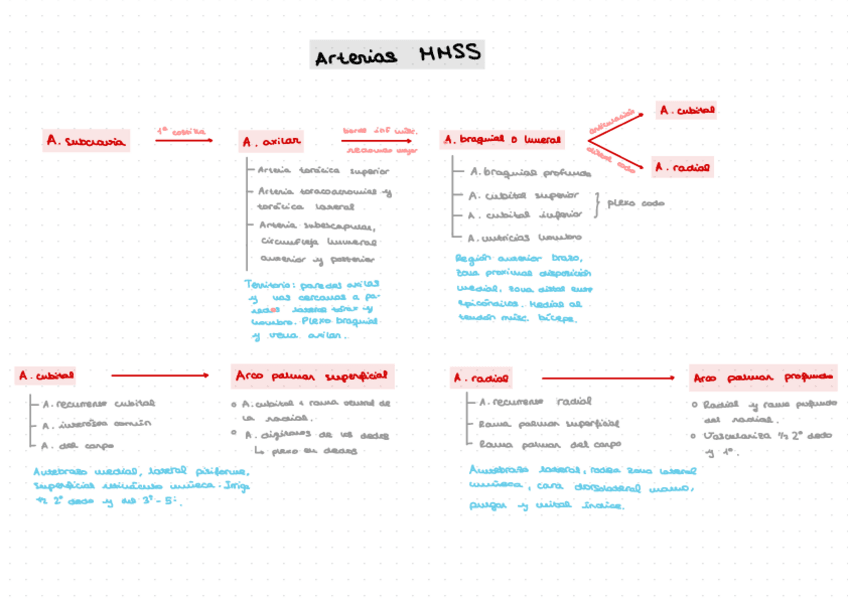 Arterias MMSS
A. subclavia
1ª costilla
A. axilar
borde inf musc.
redondo mayor
A. braquial o humeral
antebraquial
distal codo
A. cubital
A. radial
Arteria torácica superior
Arteria toracoacromial y
torácica lateral
Arteria subescapular,
circunfleja humeral
anterior y posterior
Territorio: paredes axilar
y vas cercanas a pa-
redes lateral tórax y
hombro. Plexo braquial
y vena axilar.
A. braquial profunda
A. cubital superior
A. cubital inferior
plexo codo
A. nutricias húmero
Región anterior brazo,
zona proximal disposición
medial, zona distal entre
epicóndilos. Medial al
tendón musc. bíceps.
A. cubital
Arco palmar superficial
A. recurrente cubital
A. interósea común
A. del carpo
A. cubital + rama
de
la radial.
A. digitales de los dedos
↳ plexo en dedos
Antebrazo medial, lateral pisiforme,
superficial retináculo muñeca. Irriga
½ 2º dedo y del 3º - 5º.
A. radial
Arco palmar profundo
A. recurrente radial
Rama palmar superficial
Rama palmar del carpo
Radial y rama profunda
del radial.
Vasculariza ½ 2º dedo
y 1º.
Antebrazo lateral, rodea zona lateral
muñeca, cara dorsolateral mano,
pulgar y mitad índice.